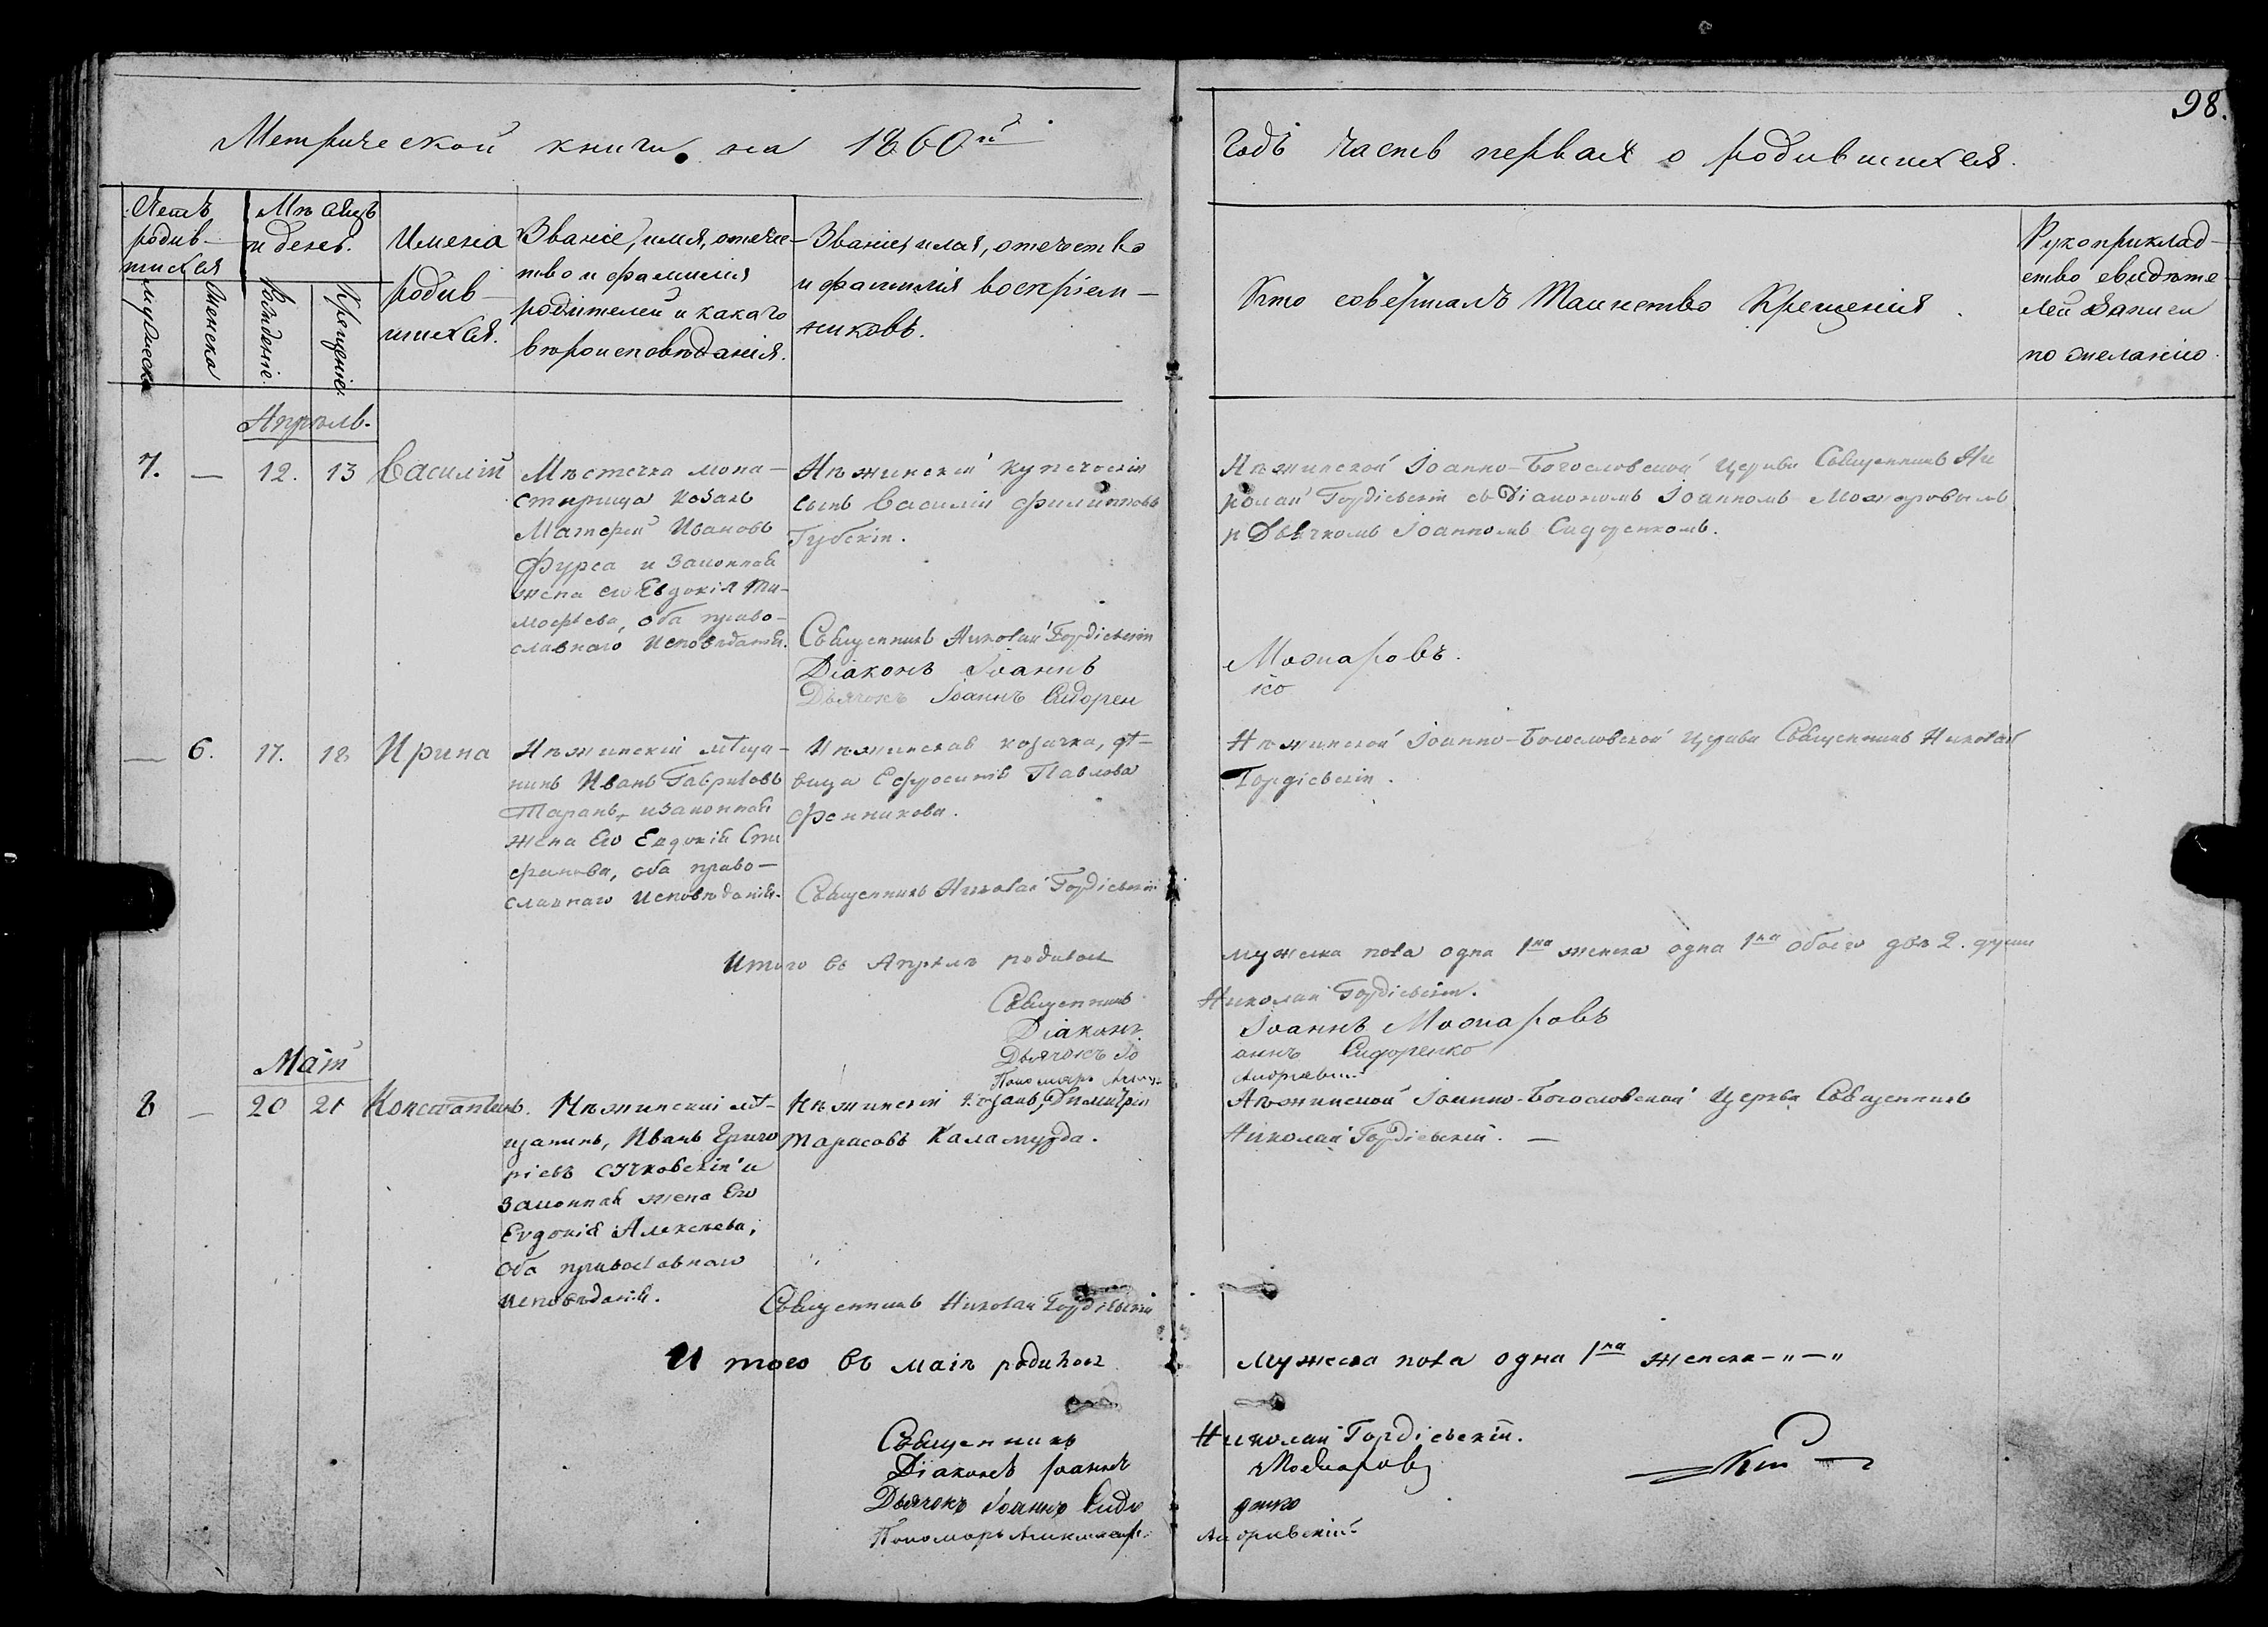 98.
Метрической книги на 1860й
Годъ часть первая о родившихся.
Летъ
родив-
шихся
Мѣсяцъ
и день.
Мужеска
Женска
Рожденіе.
Крещеніе.
Имена
родив-
шихся.
Званіе, имя, отече-
тво и фамилія
родителей и какаго
вѣроисповѣданія.
Званіе имя, отечество
и фамилія воспріем-
никовъ.
Кто совершалъ Таинство Крещенія.
Рукоприклад-
ство свидѣте-
лей записи
по желанію.
Апрѣль.
7. — 12. 13 Василій
Мѣстечка мона-
стырища козакъ
Матфей Ивановъ
Фурса и законная
жена его Евдокія Ти-
мофѣева, оба право-
славнаго исповѣданія.
Нѣжинскій купеческій
сынъ Василій Филиповъ
Губскій.
Священникъ Николай Гордіевскій
Діаконъ Іоаннъ
Дьячокъ Іоаннъ Сидорен
Нѣжинской Іоанно-Богословской Церкви Священникъ Ни
колай Гордіевскій съ Діакономъ Іоанномъ Можаровымъ
и Дьячкомъ Іоанномъ Сидоренкомъ.
Можаровъ.
ко
— 6. 17. 18 Ирина
Нѣжинскій мѣща-
нинъ Иванъ Гавриловъ
Таранъ, и законная
жена Его Евдокія Сте
фанова, оба право-
славнаго исповѣданія.
Нѣжинская козачка, дѣ-
вица Ефросинія Павлова
Священникъ Николай Гордіевскій
Нѣжинской Іоанно-Богословской Церкви Священникъ Николай
Гордіевскій.
Итого въ Апрѣлѣ родилось
мужеска пола одна 1на женска одна 1на обоего двѣ 2. души
Священникъ
Діаконъ
Дьячокъ Іо
Пономарь
Николай Гордіевскій.
Іоаннъ Можаровъ
аннъ Сидоренко
Май
8 — 20 21 Константинъ.
Нѣжинскій мѣ-
щанинъ, Иванъ Григо
ріевъ Сучковскій и
законная жена Его
Евдокія Алексѣева,
оба православнаго
исповѣданія.
Нѣжинскій Димитрій
Тарасовъ Каламурда.
Священникъ Николай Гордіевскій
Нѣжинской Іоанно-Богословской Церкви Священникъ
Николай Гордіевскій. —
Итого въ маіѣ родилось
мужеска пола одна 1на женска — " — "
Священникъ
Діаконъ Іоаннъ
Дьячокъ Іоаннъ Сидо
Пономарь
Николай Гордіевскій.
Можаровъ
ренко